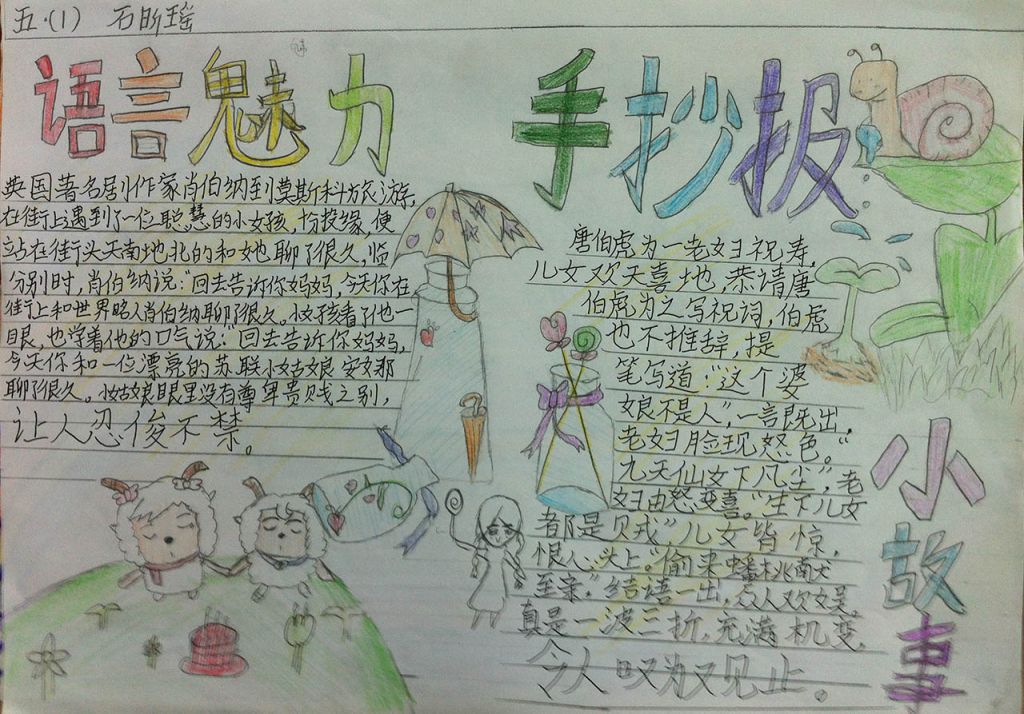 五.(1) 石昕瑶
语言魅力 手抄报
英国著名剧作家肖伯纳到莫斯科旅游,
在街上遇到了一位聪慧的小女孩,十分投缘,便
站在街头天南地北的和她聊了很久,临
分别时,肖伯纳说:“回去告诉你妈妈,今天你在
街上和世界名人肖伯纳聊了很久。小女孩看了他一
眼,也学着他的口气说:“回去告诉你妈妈,
今天你和一位漂亮的苏联小姑娘安娜
聊了很久。小姑娘眼里没有尊卑贵贱之别,
让人忍俊不禁。
唐伯虎为一老妇祝寿,
儿女欢天喜地,恭请唐
伯虎为之写祝词,伯虎
也不推辞,提
笔写道:“这个婆
娘不是人”,一言既出,
老妇脸现怒色。“
九天仙女下凡尘”,老
妇由怒变喜。“生下儿女
都是贼”儿女皆惊,
恨心头上。“偷来蟠桃献
至亲。”结语一出,众人欢娱。
真是一波三折,充满机变,
令人叹为观止。
小故事